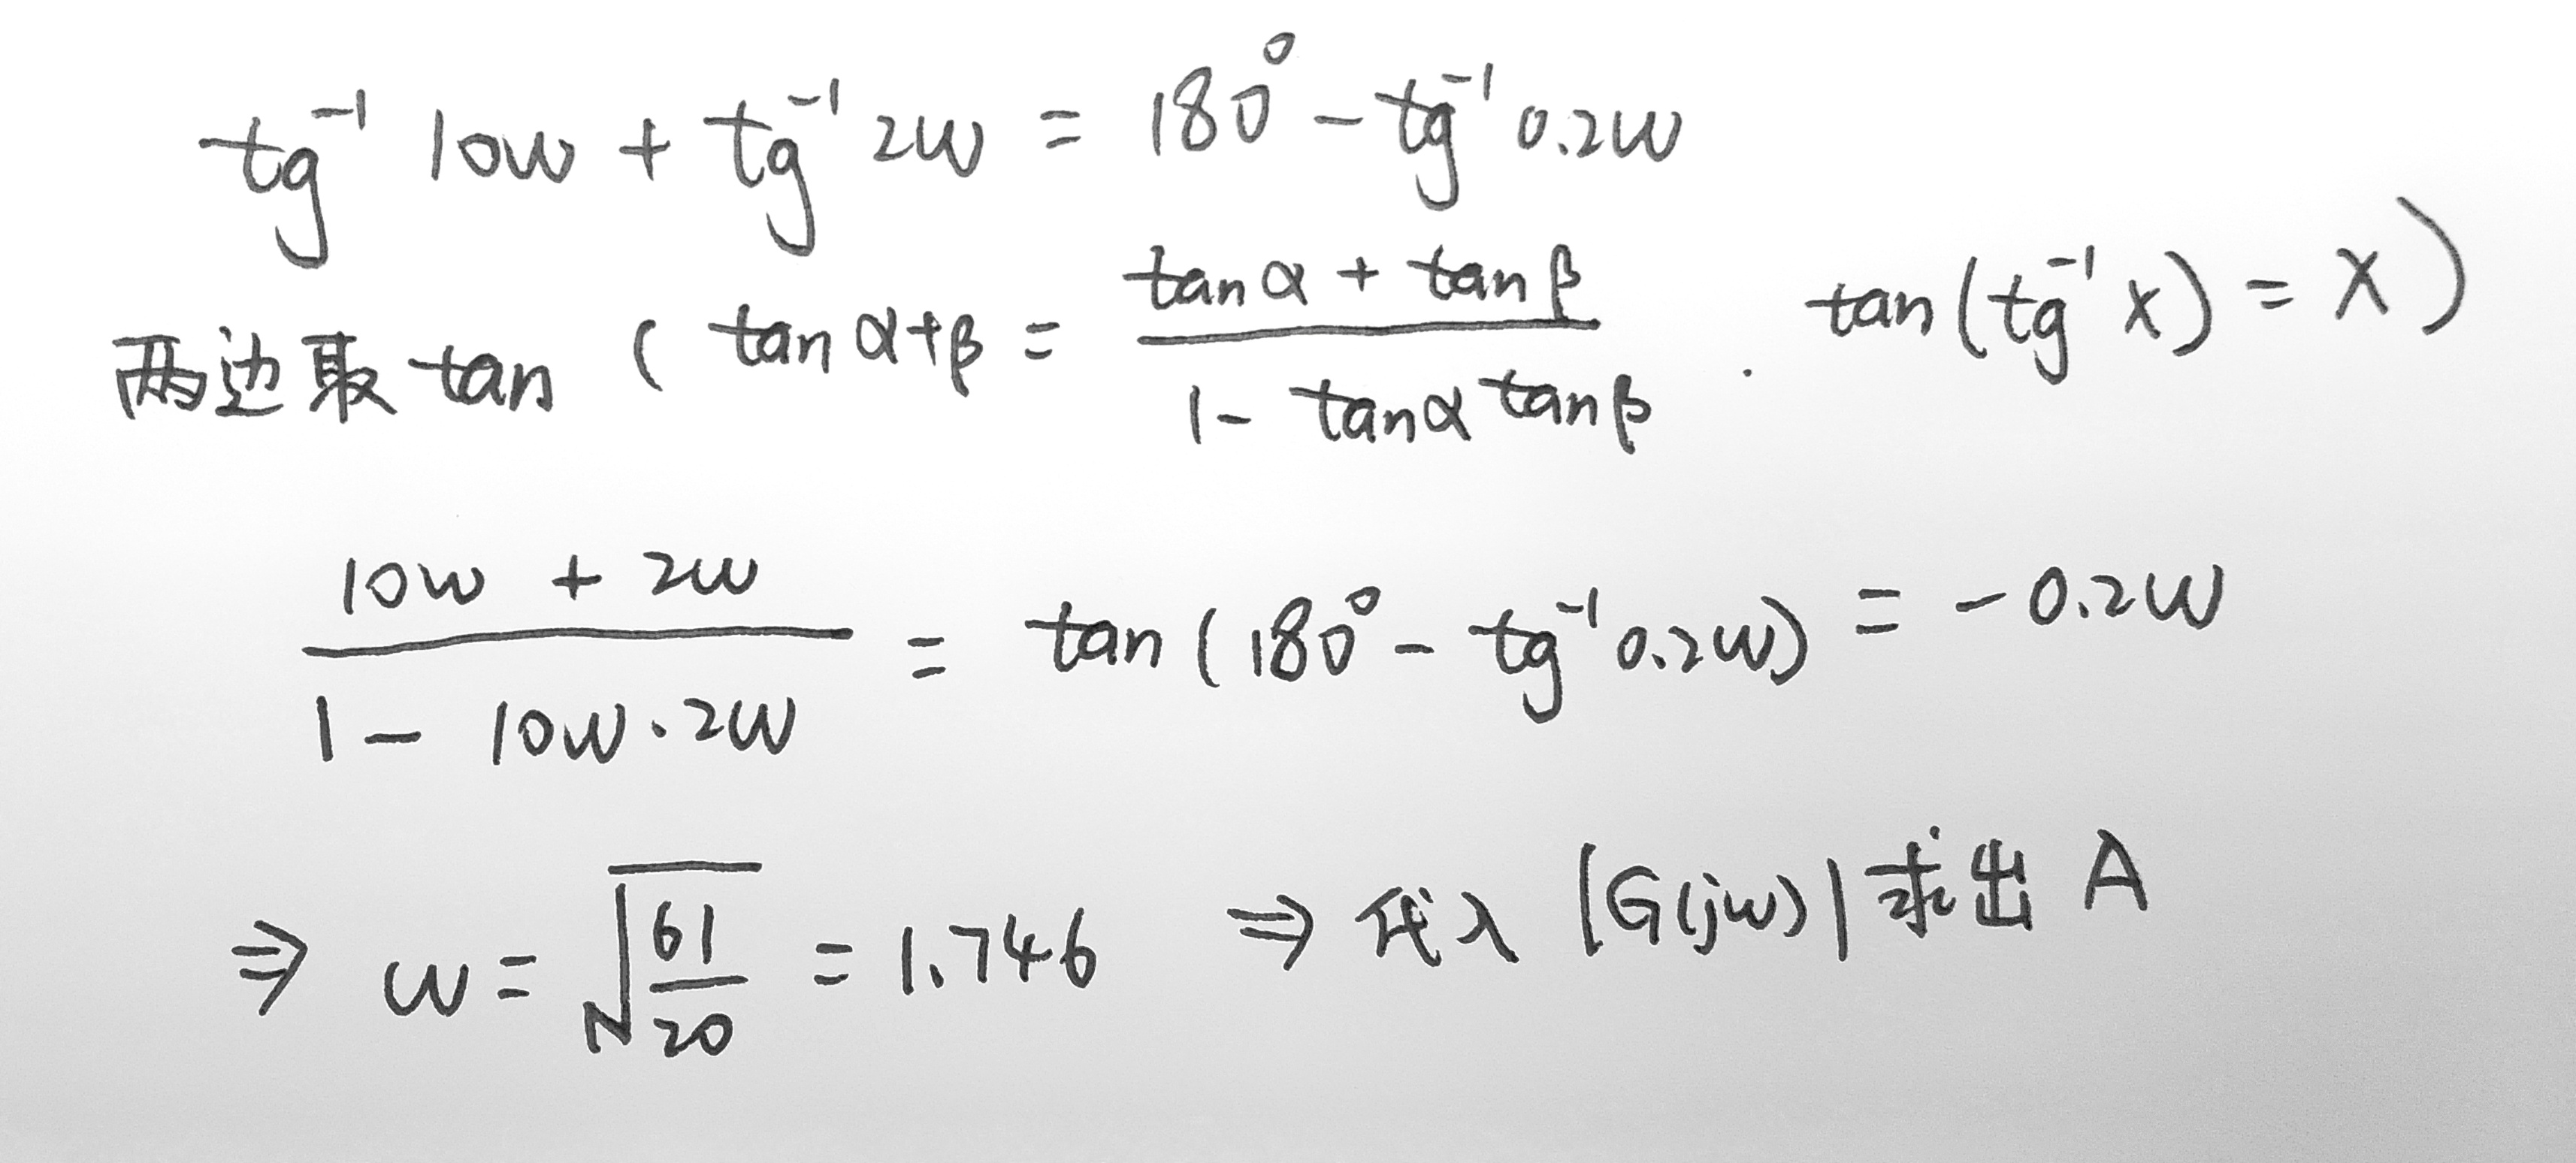 tg⁻¹ 10w + tg⁻¹ 2w = 180° - tg⁻¹ 0.2w
两边取 tan ( tan α+β = \frac{tan α + tan β}{1 - tan α tan β} . tan(tg⁻¹ x) = x )
\frac{10w + 2w}{1 - 10w · 2w} = tan (180° - tg⁻¹ 0.2w) = - 0.2w
⇒ w = \sqrt{\frac{61}{20}} = 1.746 ⇒ 代入 |G(jw)| 求出 A